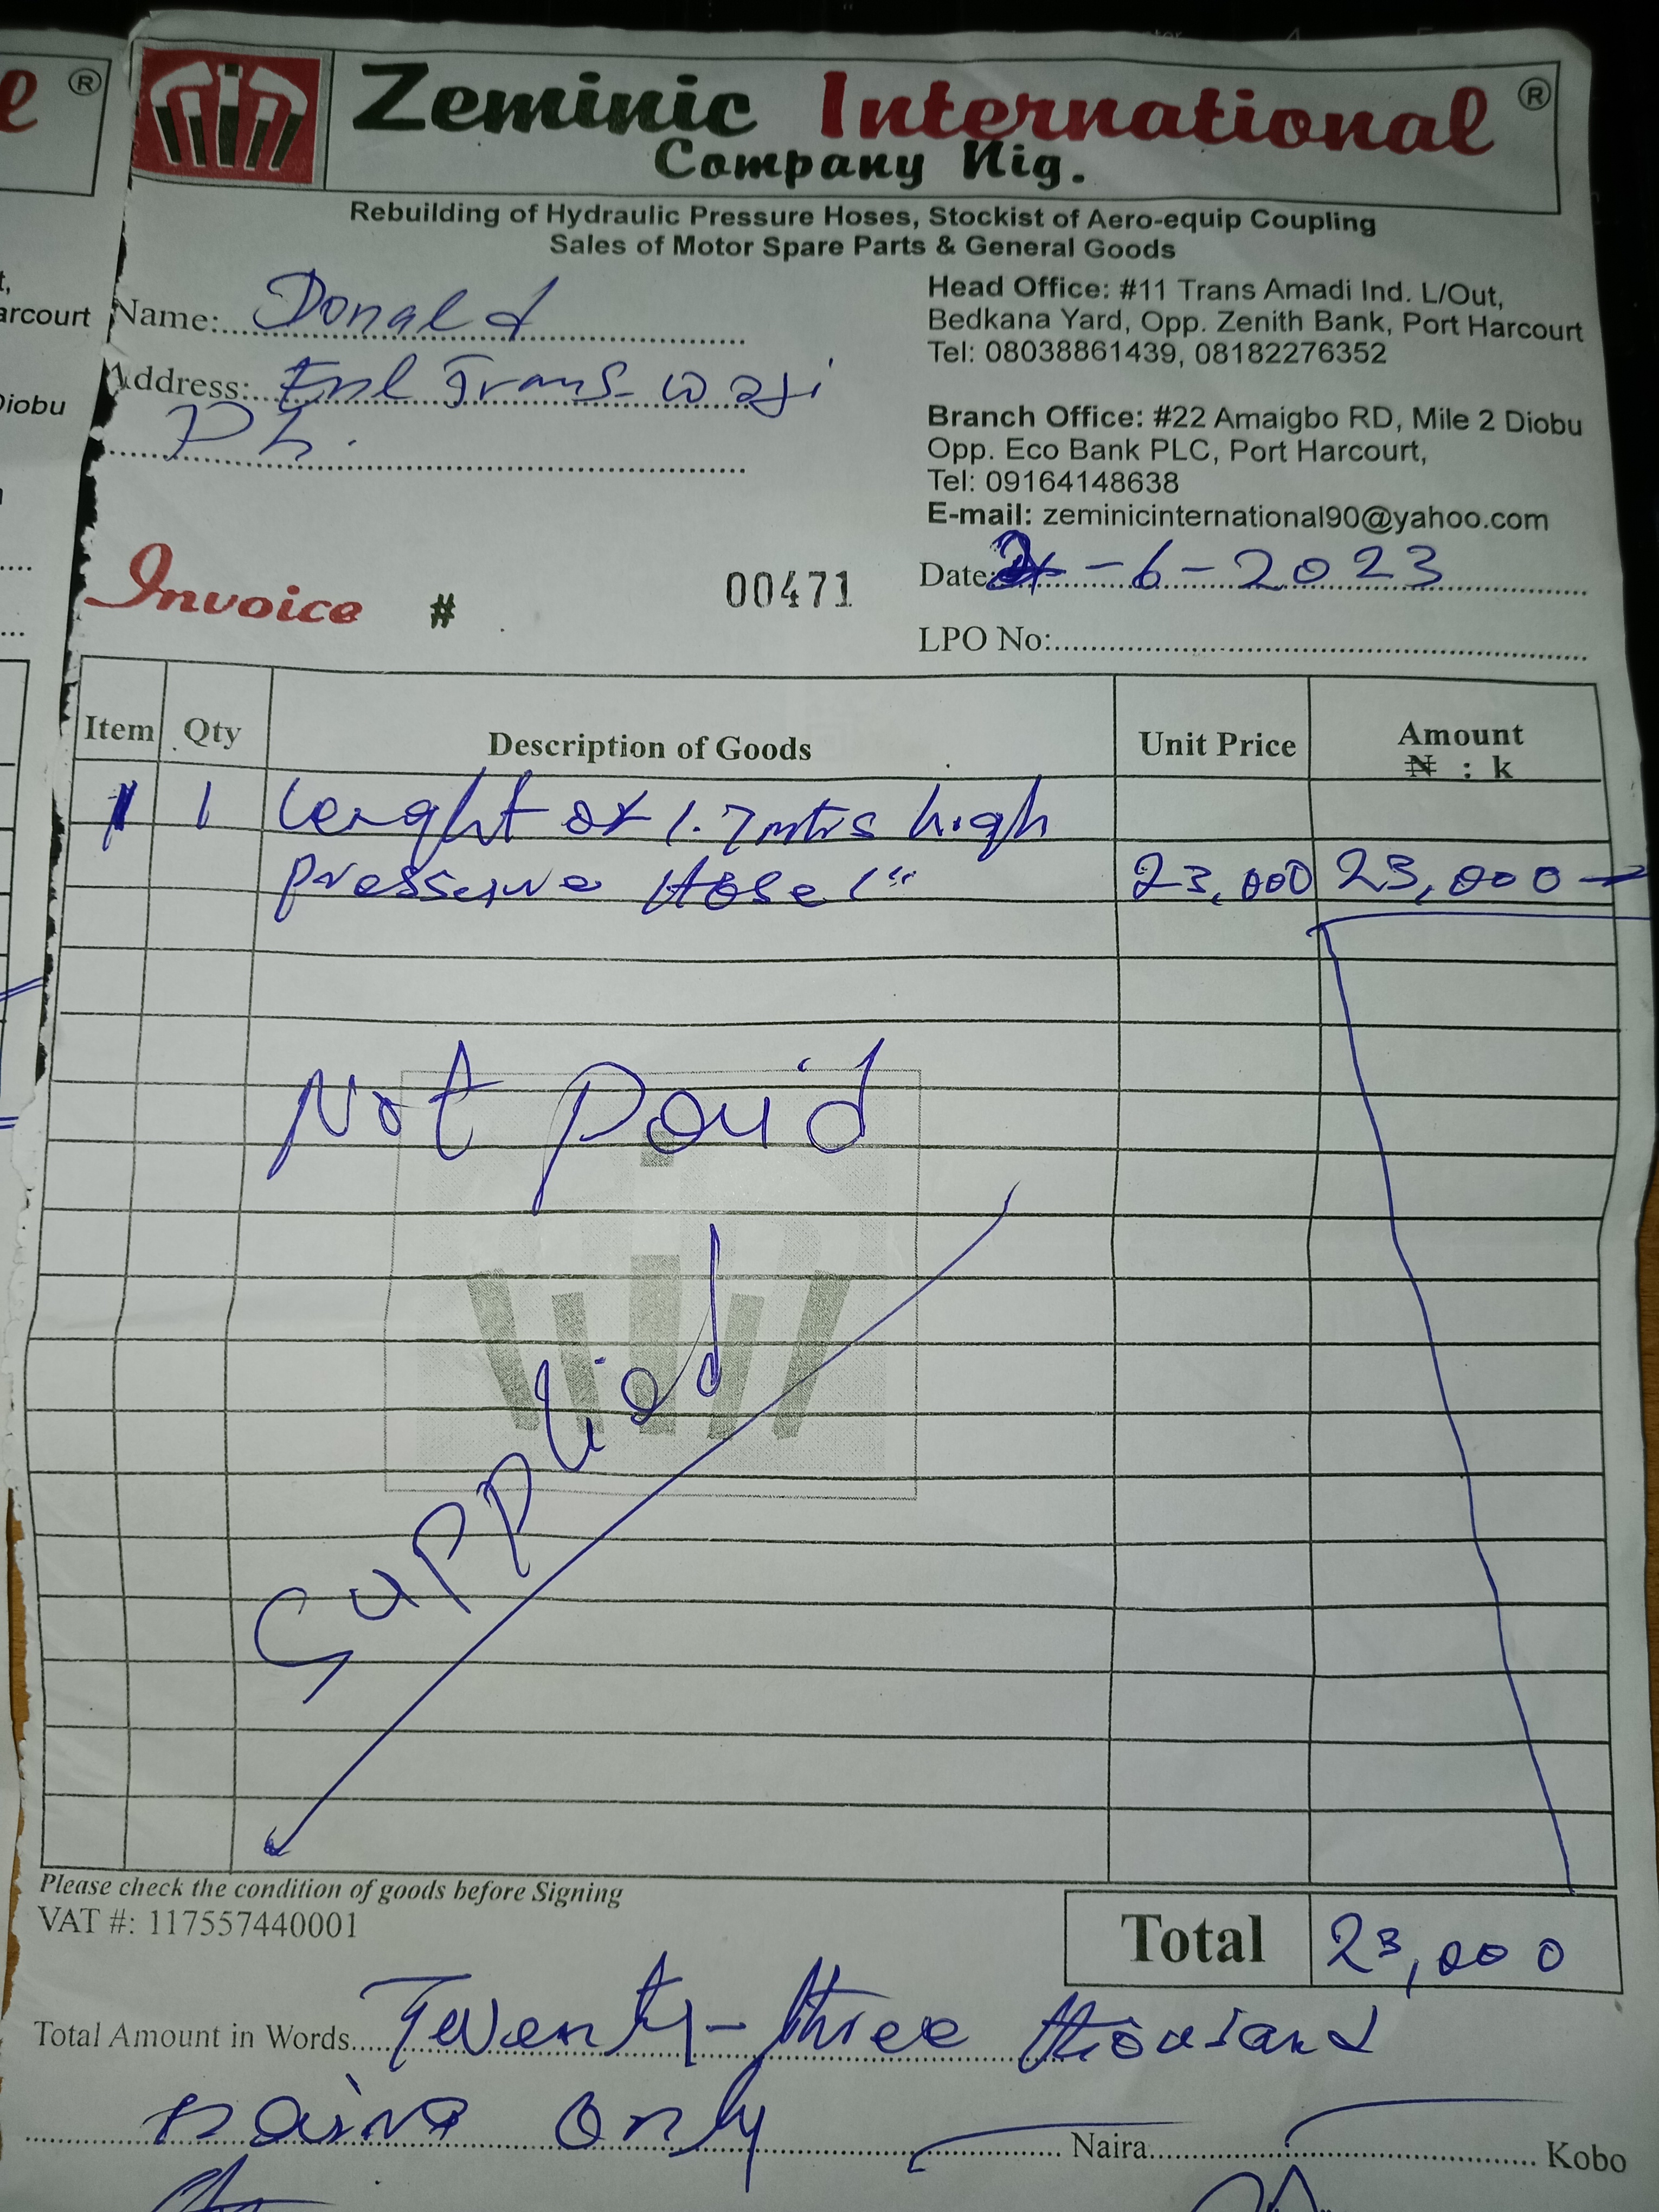 e ®
Zeminic International ®
Company Nig.
Rebuilding of Hydraulic Pressure Hoses, Stockist of Aero-equip Coupling
Sales of Motor Spare Parts & General Goods
Name: Donald
Address: Enl Trans-Woji
Ph.
Head Office: #11 Trans Amadi Ind. L/Out,
Bedkana Yard, Opp. Zenith Bank, Port Harcourt
Tel: 08038861439, 08182276352
Branch Office: #22 Amaigbo RD, Mile 2 Diobu
Opp. Eco Bank PLC, Port Harcourt,
Tel: 09164148638
E-mail: zeminicinternational90@yahoo.com
arcourt
Diobu
Invoice # 00471
Date: -6-2023
LPO No:
Item Qty Description of Goods Unit Price Amount
₦ : k
1 1 Lenght of 1.7mtrs high
pressure Hose 1" 23,000 23,000
Not paid
Supplied
Please check the condition of goods before Signing
VAT #: 117557440001
Total 23,000
Total Amount in Words Twenty-three thousand
naira only Naira Kobo